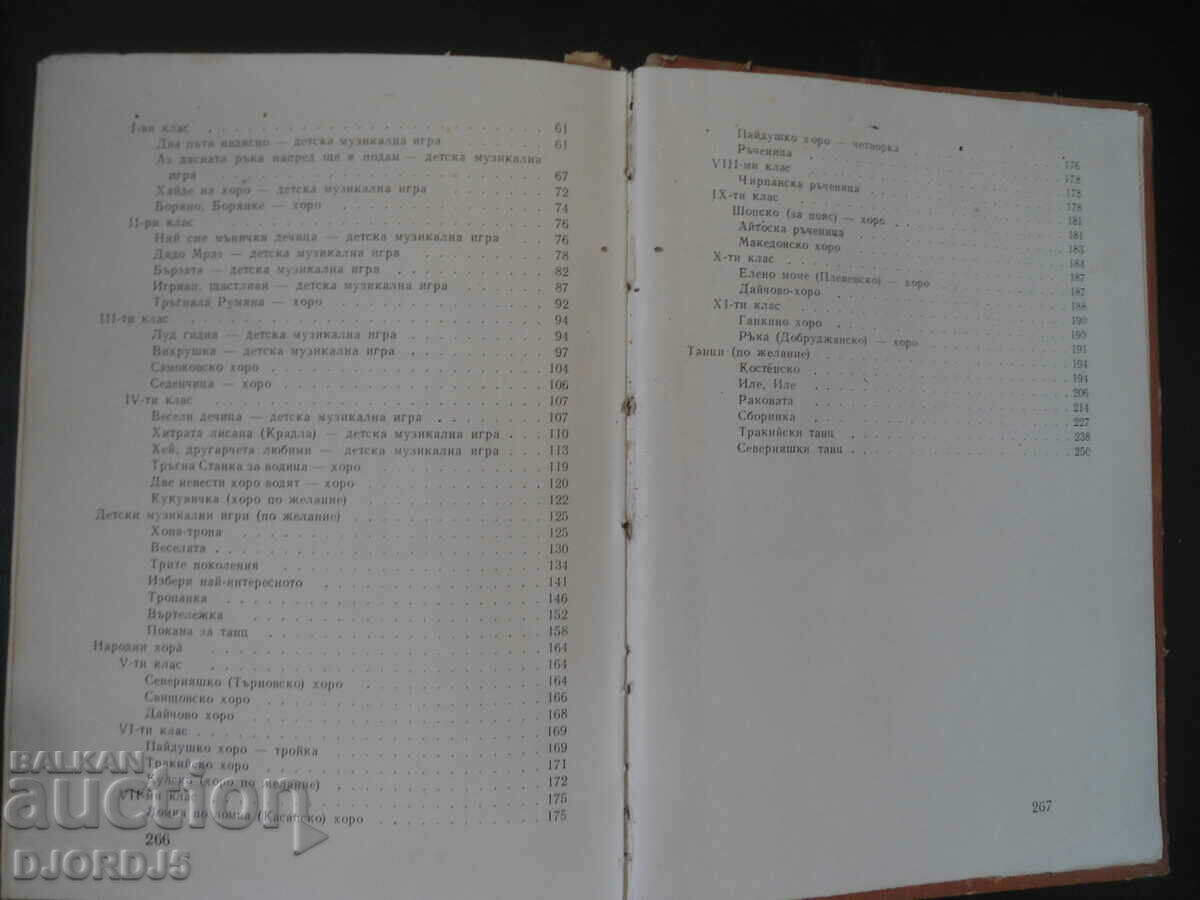 I-ви клас . . . 61
Два пъти надясно — детска музикална игра . . . 61
Аз дясната ръка напред ще я подам — детска музикална
игра . . . 67
Хайде на хоро — детска музикална игра . . . 72
Боряно, Борянке — хоро . . . 74
II-ри клас . . . 76
Ний сме мънички дечица — детска музикална игра . . . 76
Дядо Мраз — детска музикална игра . . . 78
Бързата — детска музикална игра . . . 82
Игриви, щастливи — детска музикална игра . . . 87
Тръгнала Румяна — хоро . . . 92
III-ти клас . . . 94
Луд гидия — детска музикална игра . . . 94
Вихрушка — детска музикална игра . . . 97
Самоковско хоро . . . 104
Седенчица — хоро . . . 106
IV-ти клас . . . 107
Весели дечица — детска музикална игра . . . 107
Хитрата лисана (Крадла) — детска музикална игра . . . 110
Хей, другарчета любими — детска музикална игра . . . 113
Тръгна Станка за водица — хоро . . . 119
Две невести хоро водят — хоро . . . 120
Кукувичка (хоро по желание) . . . 122
Детски музикални игри (по желание) . . . 125
Хопа-тропа . . . 125
Веселята . . . 130
Трите поколения . . . 134
Избери най-интересното . . . 141
Тропанка . . . 146
Въртележка . . . 152
Покана за танц . . . 158
Народни хора̀ . . . 164
V-ти клас . . . 164
Северняшко (Търновско) хоро . . . 164
Свищовско хоро . . . 166
Дайчово хоро . . . 168
VI-ти клас . . . 169
Пайдушко хоро — тройка . . . 169
Тракийско хоро . . . 171
Кулско (хоро по желание) . . . 172
VII-ми клас . . . 175
Ломка по ломка (Касапско) хоро . . . 175
266
Пайдушко хоро — четворка . . . 176
Ръченица . . . 178
VIII-ми клас . . . 178
Чирпанска ръченица . . . 178
IX-ти клас . . . 181
Шопско (за пояс) — хоро . . . 181
Айтоска ръченица . . . 183
Македонско хоро . . . 184
X-ти клас . . . 187
Елено моме (Плевенско) — хоро . . . 187
Дайчово-хоро . . . 188
XI-ти клас . . . 190
Ганкино хоро . . . 190
Ръка (Добруджанско) — хоро . . . 191
Танци (по желание) . . . 194
Костенско . . . 194
Иле, Иле . . . 206
Раковата . . . 214
Сборинка . . . 227
Тракийски танц . . . 238
Северняшки танц . . . 250
267
BALKAN
auction
DJORDJ5